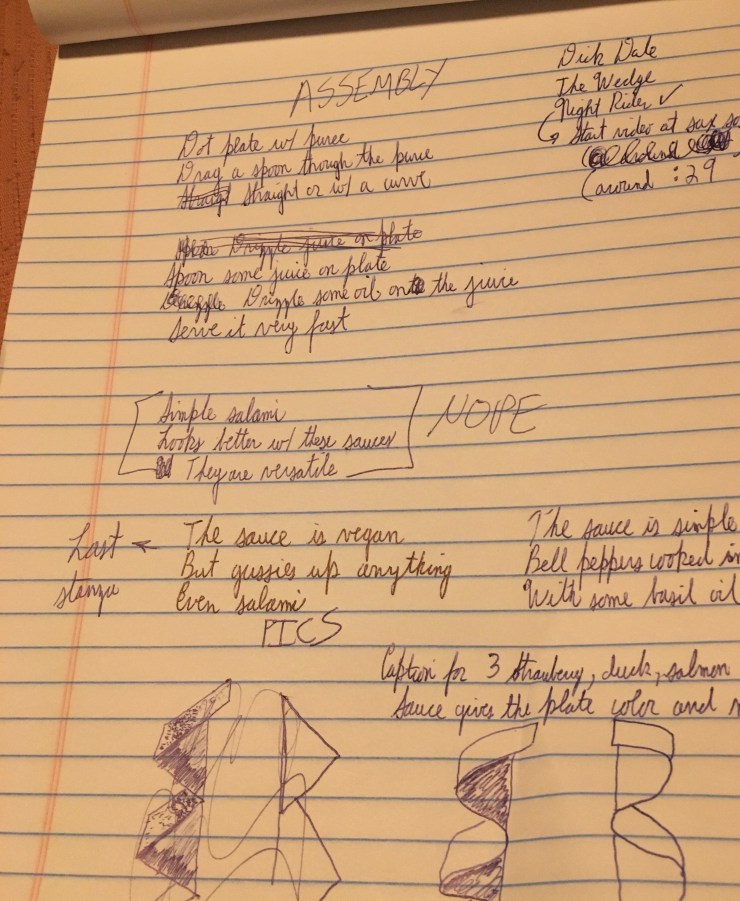 ASSEMBLY
Dot plate w/ puree
Drag a spoon though the puree
Straight Straight or w/ a curve
Drizzle juice on plate
Spoon some juice on plate
Drizzle some oil onto the juice
Serve it very fast
Dick Dale
The Wedge
Night Rider ✓
↳ Start video at sax
(around :29
Simple salami
Looks better w/ these sauces
They are versatile
NOPE
Last ←
stanza
The sauce is vegan
But gussies up anything
Even salami
The sauce is simple
Bell peppers cooked in
With some basil oil
PICS
Caption for 3 strawberry, duck, salmon
Sauce gives the plate color and